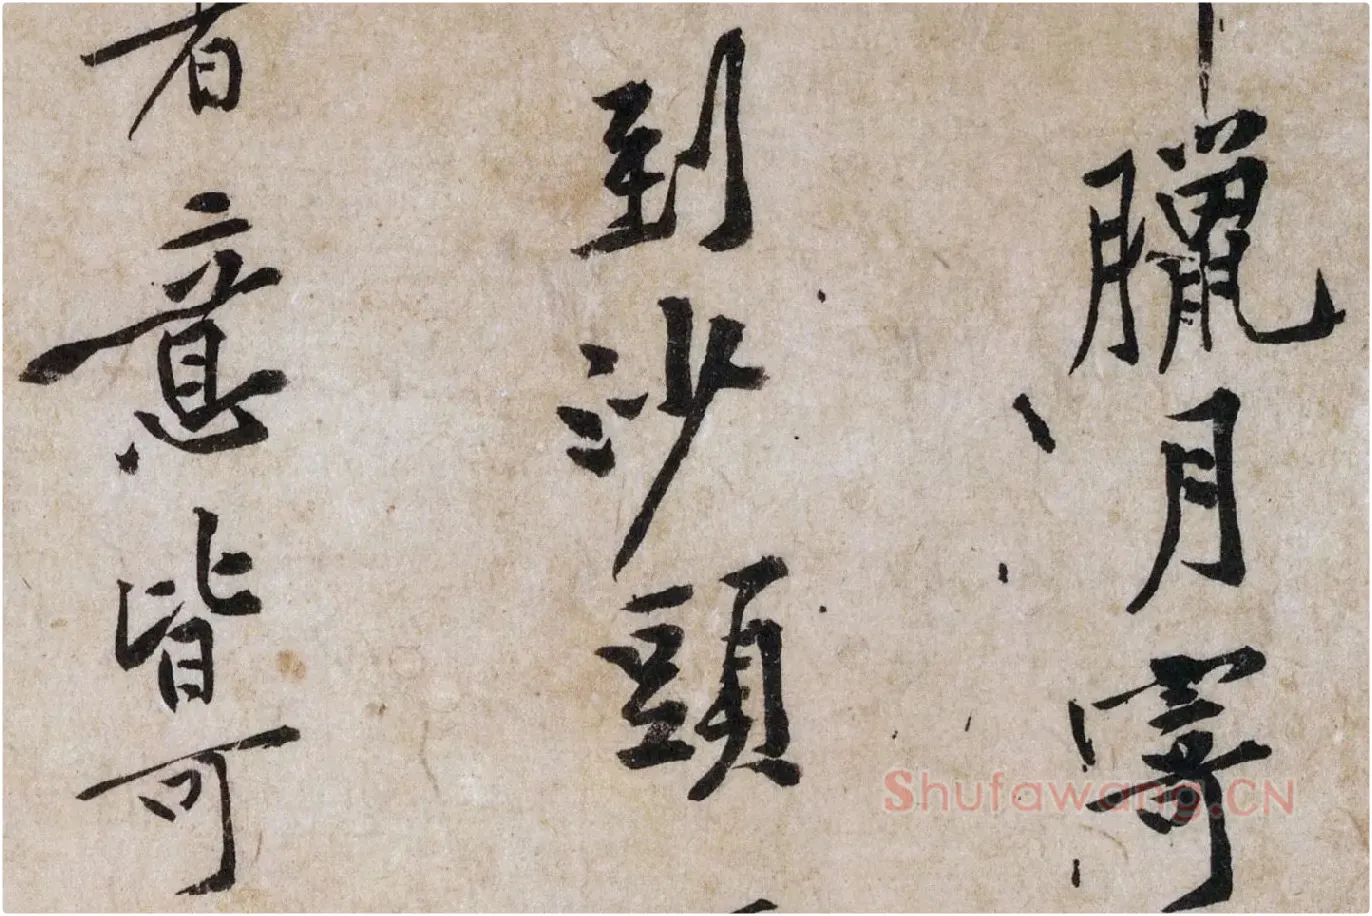 臘月寄
到沙頭
者意皆可
Shufawang.CN